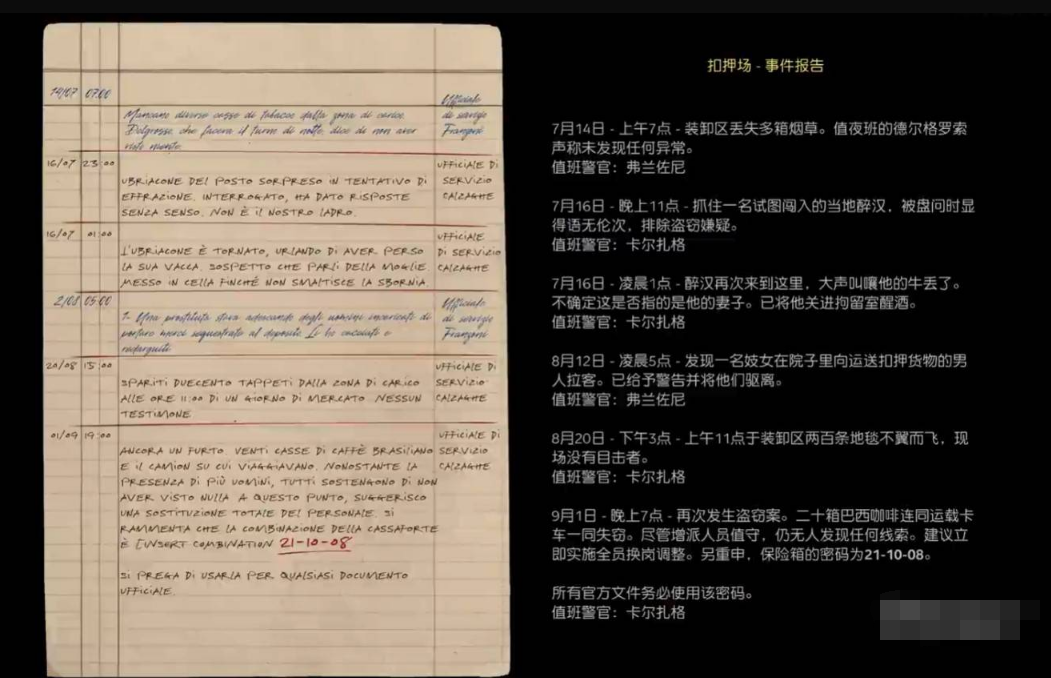 14/07 07:00
Mancano diverse casse di tabacco dalla zona di carico
Delgrosso che faceva il turno di notte, dice di non aver
visto niente.
Ufficiale
di servizio
Frangoni
16/07 23:00
UBRIACONE DEL POSTO SORPRESO IN TENTATIVO DI
EFFRAZIONE. INTERROGATO, HA DATO RISPOSTE
SENZA SENSO. NON È IL NOSTRO LADRO.
UFFICIALE DI
SERVIZIO
CALZAGHE
16/07 01:00
L'UBRIACONE È TORNATO, URLANDO DI AVER PERSO
LA SUA VACCA. SOSPETTO CHE PARLI DELLA MOGLIE.
MESSO IN CELLA FINCHÉ NON SMALTISCE LA SBORNIA.
UFFICIALE
DI SERVIZIO
CALZAGHE
2/08 05:00
1. Una prostituta stava adescando degli uomini incaricati di
portare merci sequestrate al deposito. Li ho cacciati e
redarguiti
Ufficiale
di servizio
Frangoni
20/08 15:00
SPARITI DUECENTO TAPPETI DALLA ZONA DI CARICO
ALLE ORE 11:00 DI UN GIORNO DI MERCATO. NESSUN
TESTIMONE.
UFFICIALE DI
SERVIZIO
CALZAGHE
01/09 19:00
ANCORA UN FURTO. VENTI CASSE DI CAFFÈ BRASILIANO
E IL CAMION SU CUI VIAGGIAVANO. NONOSTANTE LA
PRESENZA DI PIÙ UOMINI, TUTTI SOSTENGONO DI NON
AVER VISTO NULLA. A QUESTO PUNTO, SUGGERISCO
UNA SOSTITUZIONE TOTALE DEL PERSONALE. SI
RAMMENTA CHE LA COMBINAZIONE DELLA CASSAFORTE
È [INSERT COMBINATION 21-10-08
SI PREGA DI USARLA PER QUALSIASI DOCUMENTO
UFFICIALE.
UFFICIALE DI
SERVIZIO
CALZAGHE
扣押场 - 事件报告
7月14日 - 上午7点 - 装卸区丢失多箱烟草。值夜班的德尔格罗索
声称未发现任何异常。
值班警官：弗兰佐尼
7月16日 - 晚上11点 - 抓住一名试图闯入的当地醉汉，被盘问时显
得语无伦次，排除盗窃嫌疑。
值班警官：卡尔扎格
7月16日 - 凌晨1点 - 醉汉再次来到这里，大声叫嚷他的牛丢了。
不确定这是否指的是他的妻子。已将他关进拘留室醒酒。
值班警官：卡尔扎格
8月12日 - 凌晨5点 - 发现一名妓女在院子里向运送扣押货物的男
人拉客。已给予警告并将他们驱离。
值班警官：弗兰佐尼
8月20日 - 下午3点 - 上午11点于装卸区两百条地毯不翼而飞，现
场没有目击者。
值班警官：卡尔扎格
9月1日 - 晚上7点 - 再次发生盗窃案。二十箱巴西咖啡连同运载卡
车一同失窃。尽管增派人员值守，仍无人发现任何线索。建议立
即实施全员换岗调整。另重申，保险箱的密码为21-10-08。
所有官方文件务必使用该密码。
值班警官：卡尔扎格